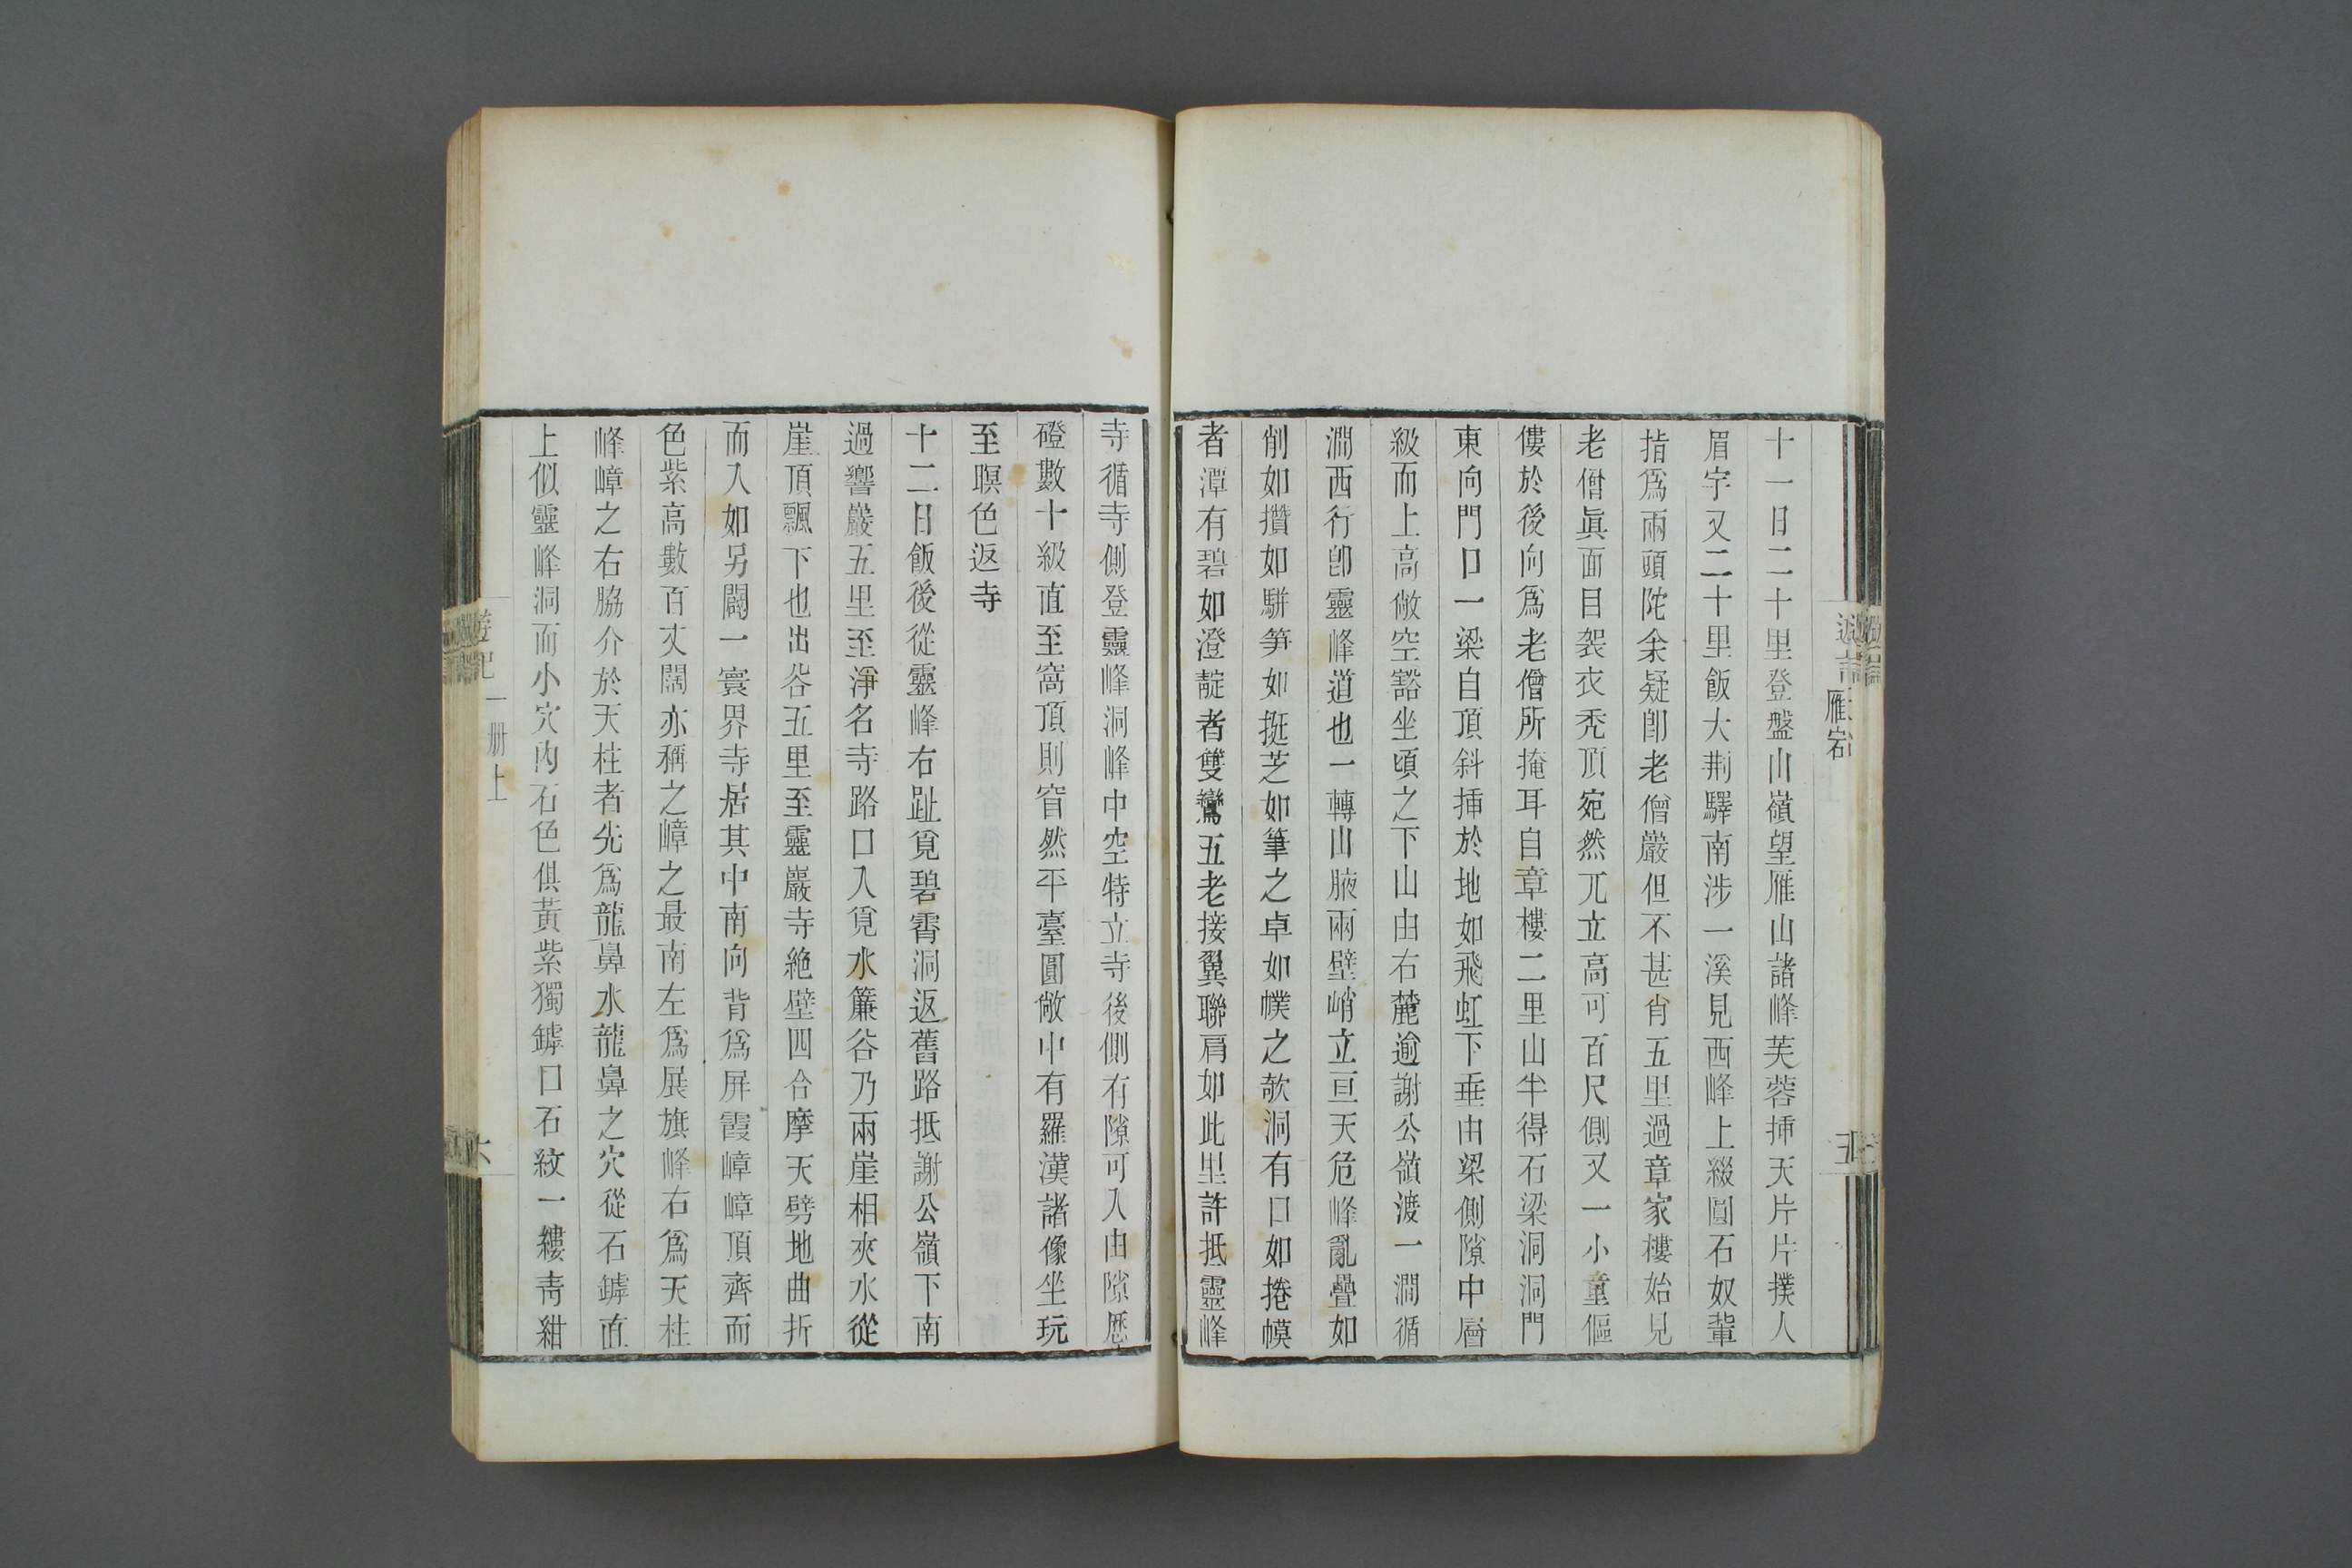 雁宕
十一日二十里登盤山嶺望雁山諸峰芙蓉揷天片片撲人
眉宇又二十里飯大荆驛南涉一溪見西峰上綴圓石奴輩
指爲兩頭陀余疑卽老僧巖但不甚肖五里過章家樓始見
老僧眞面目袈衣禿頂宛然兀立高可百尺側又一小童傴
僂於後向爲老僧所掩耳自章樓二里山半得石梁洞洞門
東向門口一梁自頂斜揷於地如飛虹下垂由梁側隙中層
級而上高敞空豁坐頃之下山由右麓逾謝公嶺渡一澗循
澗西行卽靈峰道也一轉山腋兩壁峭立亘天危峰亂疊如
削如攢如駢笋如挺芝如筆之卓如幞之欹洞有口如捲幙
者潭有碧如澄靛者雙鸞五老接翼聯肩如此里許抵靈峰
寺循寺側登靈峰洞峰中空特立寺後側有隙可入由隙歷
磴數十級直至窩頂則窅然平臺圓敞中有羅漢諸像坐玩
至暝色返寺
十二日飯後從靈峰右趾覓碧霄洞返舊路抵謝公嶺下南
過響巖五里至淨名寺路口入覓水簾谷乃兩崖相夾水從
崖頂飄下也出谷五里至靈巖寺絶壁四合摩天劈地曲折
而入如另闢一寰界寺居其中南向背爲屏霞嶂嶂頂齊而
色紫高數百丈闊亦稱之嶂之最南左爲展旗峰右爲天柱
峰嶂之右脇介於天柱者先爲龍鼻水龍鼻之穴從石罅直
上似靈峰洞而小穴內石色俱黃紫獨罅口石紋一縷靑紺
遊記一册上
六